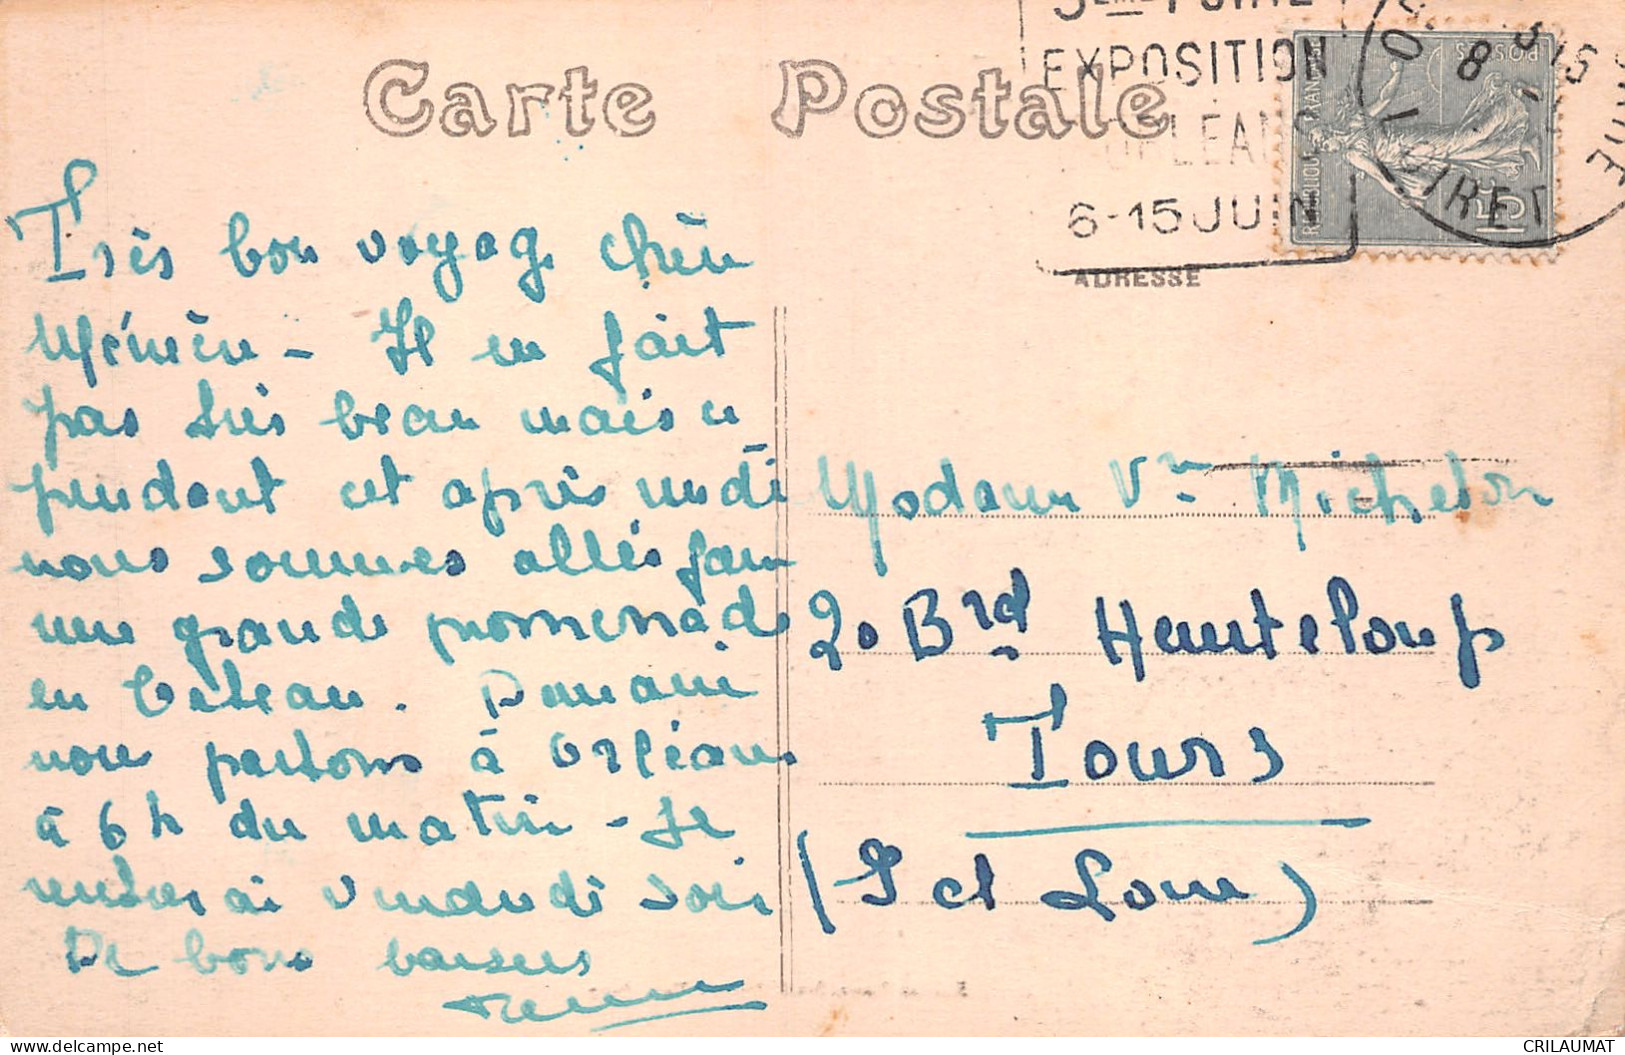 Carte Postale
EXPOSITION
ORLEANS
6-15 JUIN
LOIRET
REPUBLIQUE FRANCAISE
POSTES
15c
ADRESSE
Très bon voyage chère
Mémère - Il en fait
pas très beau mais ce
pendant cet après midi
nous sommes allés faire
une grande promenade
en bateau. Demain
nous partons à Orléans
à 6 h du matin - Je
rentrerai vendredi soir
De bons baisers
Madame Vve Micheson
20 Brd Heurteloup
Tours
(I et Loire)
CRILAUMAT